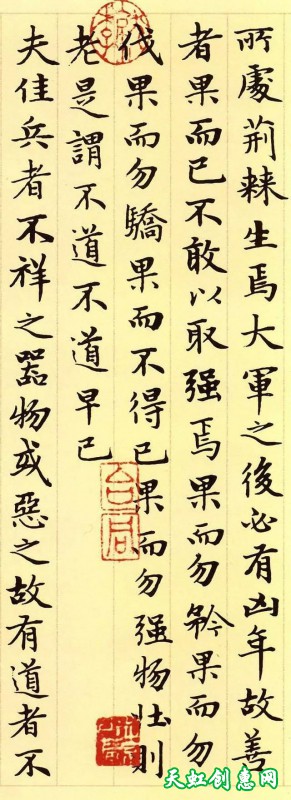 所處荊棘生焉大軍之後必有凶年故善
者果而已不敢以取强焉果而勿矜果而勿
伐果而勿驕果而不得已果而勿强物壯則
老是謂不道不道早已
夫佳兵者不祥之器物或惡之故有道者不
天虹创惠网